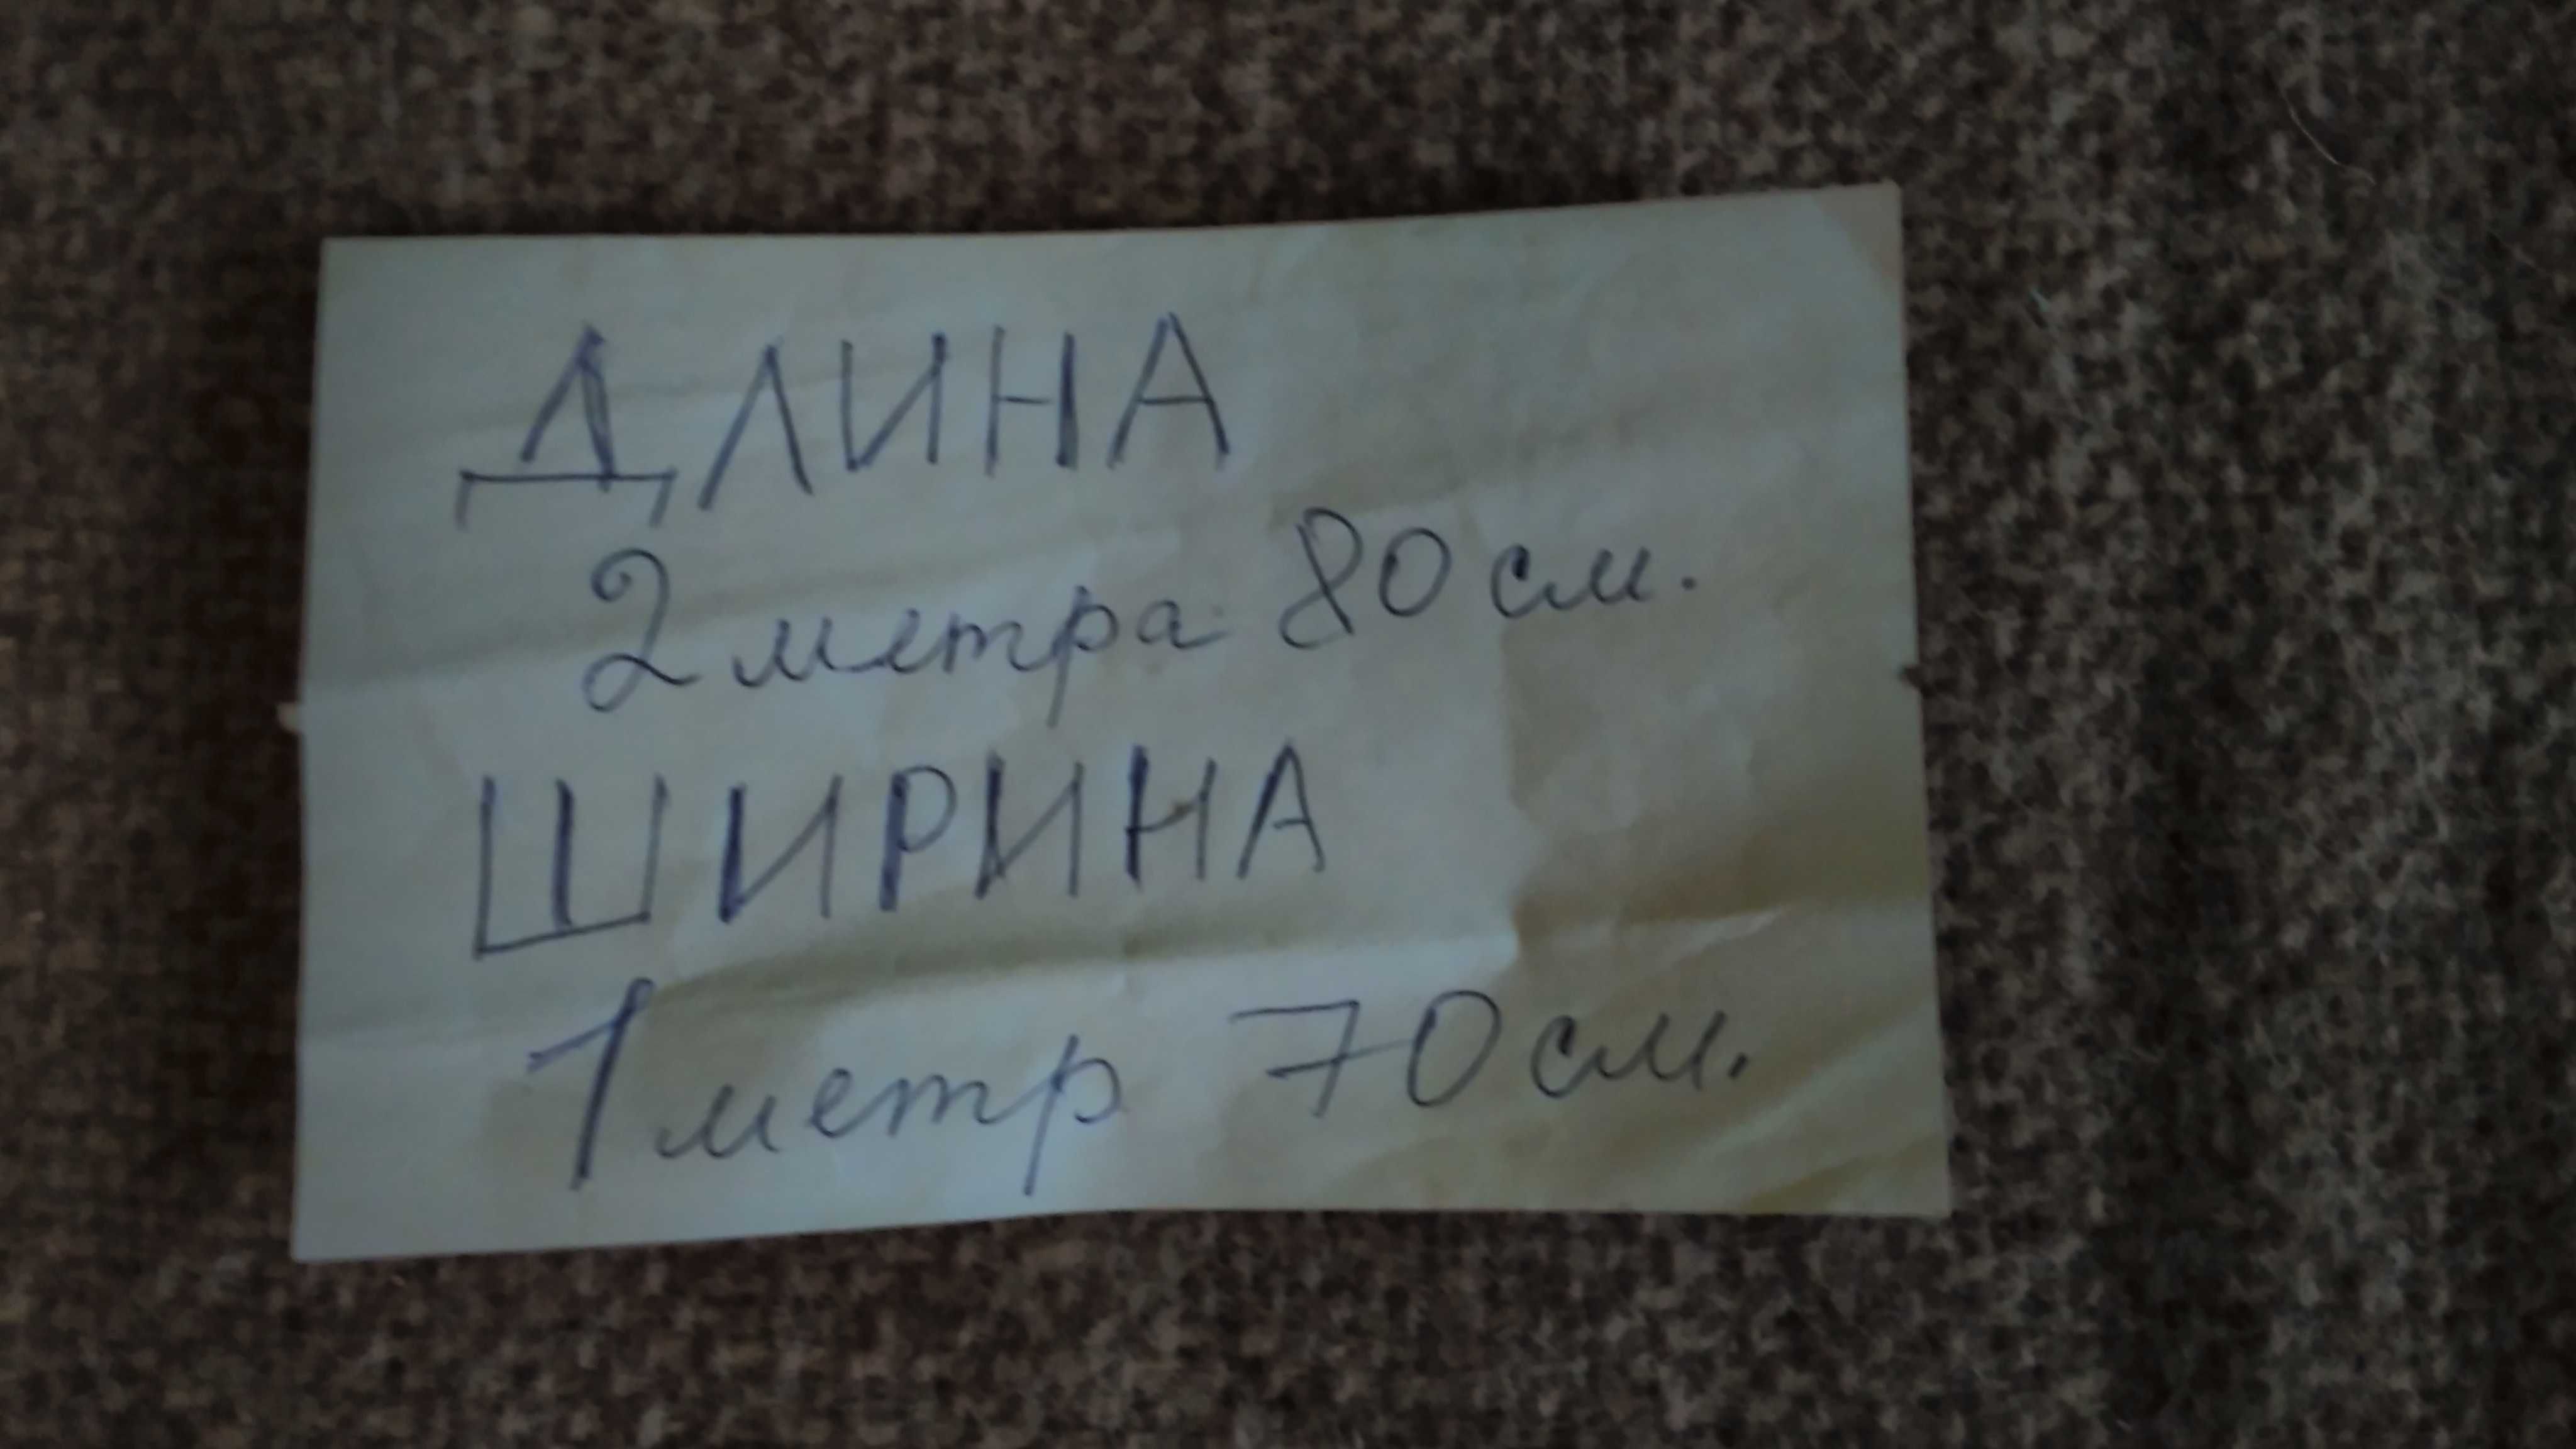 ДЛИНА
2 метра 80 см.
ШИРИНА
1 метр 70 см.